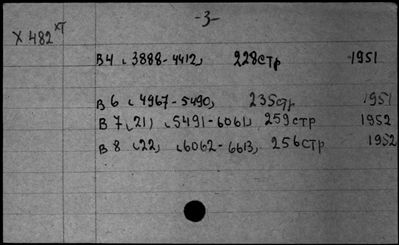 -3-
X 482 XT
B4 (3888-4412) 228 стр 1951
B 6 (4967-5490) 235 стр 1951
B 7 (21) (5491-6061) 259 стр 1952
B 8 (22) (6062-6613) 256 стр 1952